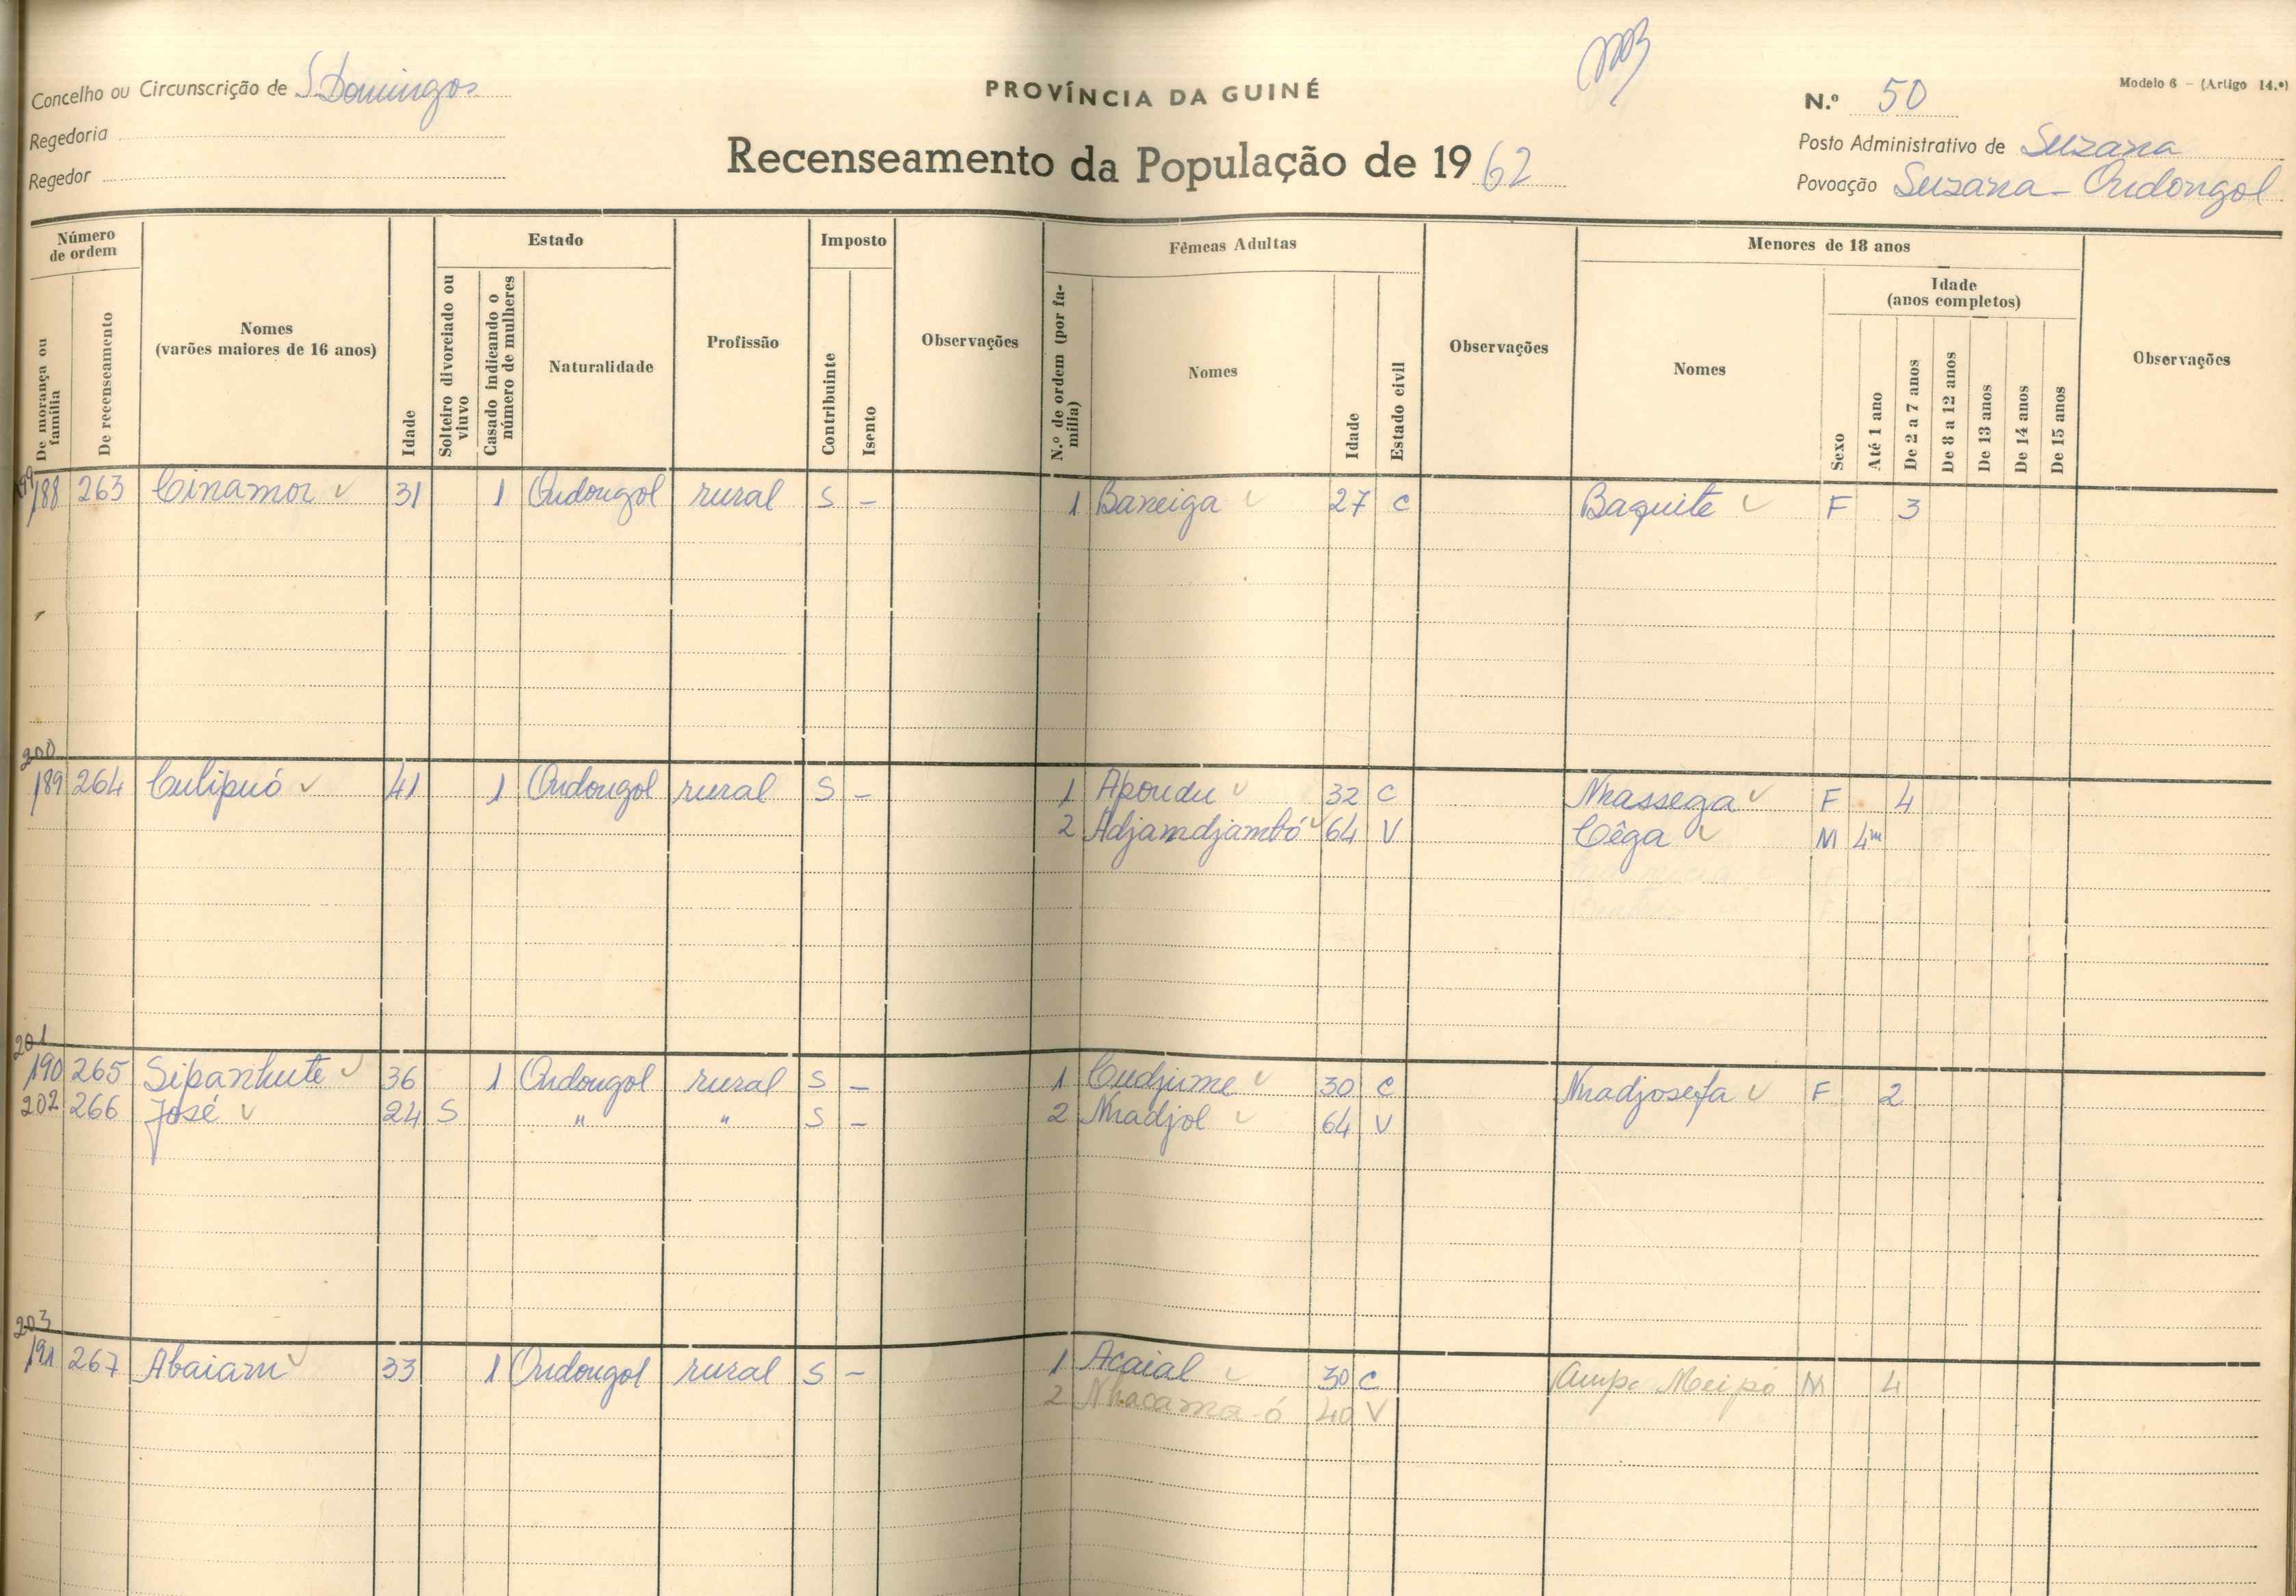 Concelho ou Circunscrição de S. Domingos
Regedoria
Regedor
PROVÍNCIA DA GUINÉ
Recenseamento da População de 1962
Modelo 6 - (Artigo 14.º)
N.º 50
Posto Administrativo de Suzana
Povoação Suzana - Ondongol
Número de ordem
De morança ou família
De recenseamento
Nomes
(varões maiores de 16 anos)
Idade
Estado
Solteiro divorciado ou viuvo
Casado indicando o número de mulheres
Naturalidade
Profissão
Imposto
Contribuinte
Isento
Observações
Fêmeas Adultas
N.º de ordem (por família)
Nomes
Idade
Estado civil
Observações
Menores de 18 anos
Nomes
Sexo
Idade
(anos completos)
Até 1 ano
De 2 a 7 anos
De 8 a 12 anos
De 13 anos
De 14 anos
De 15 anos
Observações
199
188 263 Cinamor 31 1 Ondongol rural S - 1 Baneiga 27 C Baquite F 3
200
189 264 Culipuó 41 1 Ondongol rural S - 1 Apondu 32 C Nhassega F 4
2 Adjamdjambó 64 V Cêga M 4m
201
190 265 Sipanhute 36 1 Ondongol rural S - 1 Cudjume 30 C Nhadjosefa F 2
202 266 José 24 S " " S - 2 Nhadjol 64 V
203
191 267 Abaiam 33 1 Ondongol rural S - 1 Acaial 30 C Ampa Meipó M 4
2 Nhacama-ó 40 V